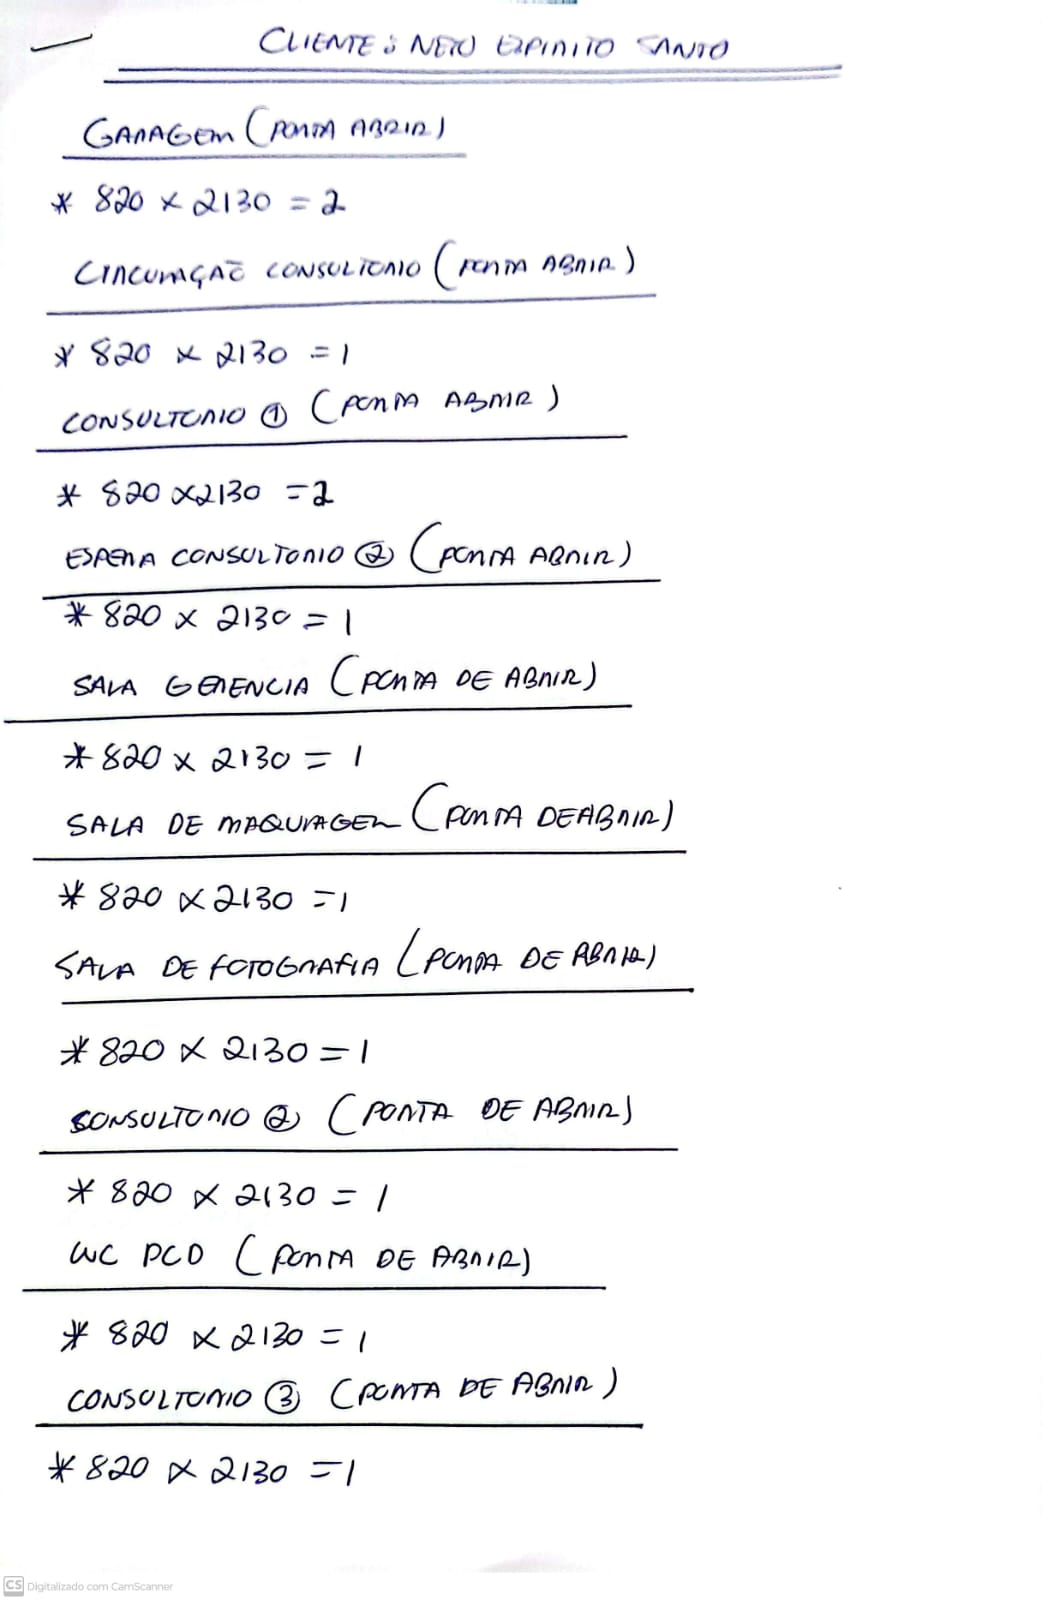 CLIENTE: NETO ESPIRITO SANTO
GARAGEM (PORTA ABRIR)
* 820 x 2130 = 2
CIRCULAÇÃO CONSULTORIO (PORTA ABRIR)
* 820 x 2130 = 1
CONSULTORIO ① (PORTA ABRIR)
* 820 x 2130 = 2
ESPERA CONSULTORIO ② (PORTA ABRIR)
* 820 x 2130 = 1
SALA GERENCIA (PORTA DE ABRIR)
* 820 x 2130 = 1
SALA DE MAQUIAGEM (PORTA DE ABRIR)
* 820 x 2130 = 1
SALA DE FOTOGRAFIA (PORTA DE ABRIR)
* 820 x 2130 = 1
CONSULTORIO ② (PORTA DE ABRIR)
* 820 x 2130 = 1
WC PCD (PORTA DE ABRIR)
* 820 x 2130 = 1
CONSULTORIO ③ (PORTA DE ABRIR)
* 820 x 2130 = 1
CS Digitalizado com CamScanner